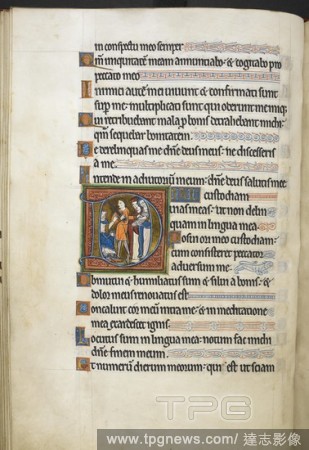 in conspectu meo semper
m iniquitatem meam annunciabo · & cogitabo pro
peccato meo
Inimici autem mei vivunt & confirmati sunt
super me · multiplicati sunt qui oderunt me iniq;
ui retribuebant mala pro bonis detrahebant michi
qm sequebar bonitatem ·
Ne derelinquas me domine deus meus · ne discesseris
a me
Intende in adiutorium meum · domine deus salutis mee
Dixi custodiam
vias meas · ut non delin
quam in lingua mea ·
Posui ori meo custodiam ·
cum consisteret peccator
adversum me ·
Obmutui & humiliatus sum & silui a bonis · &
dolor meus renovatus est
Concaluit cor meum intra me · & in meditatione
mea exardescet ignis ·
Locutus sum in lingua mea · notum fac michi
domine finem meum
Et numerum dierum meorum · qui est ut sciam
TPG
www.tpgnews.com/達志影像